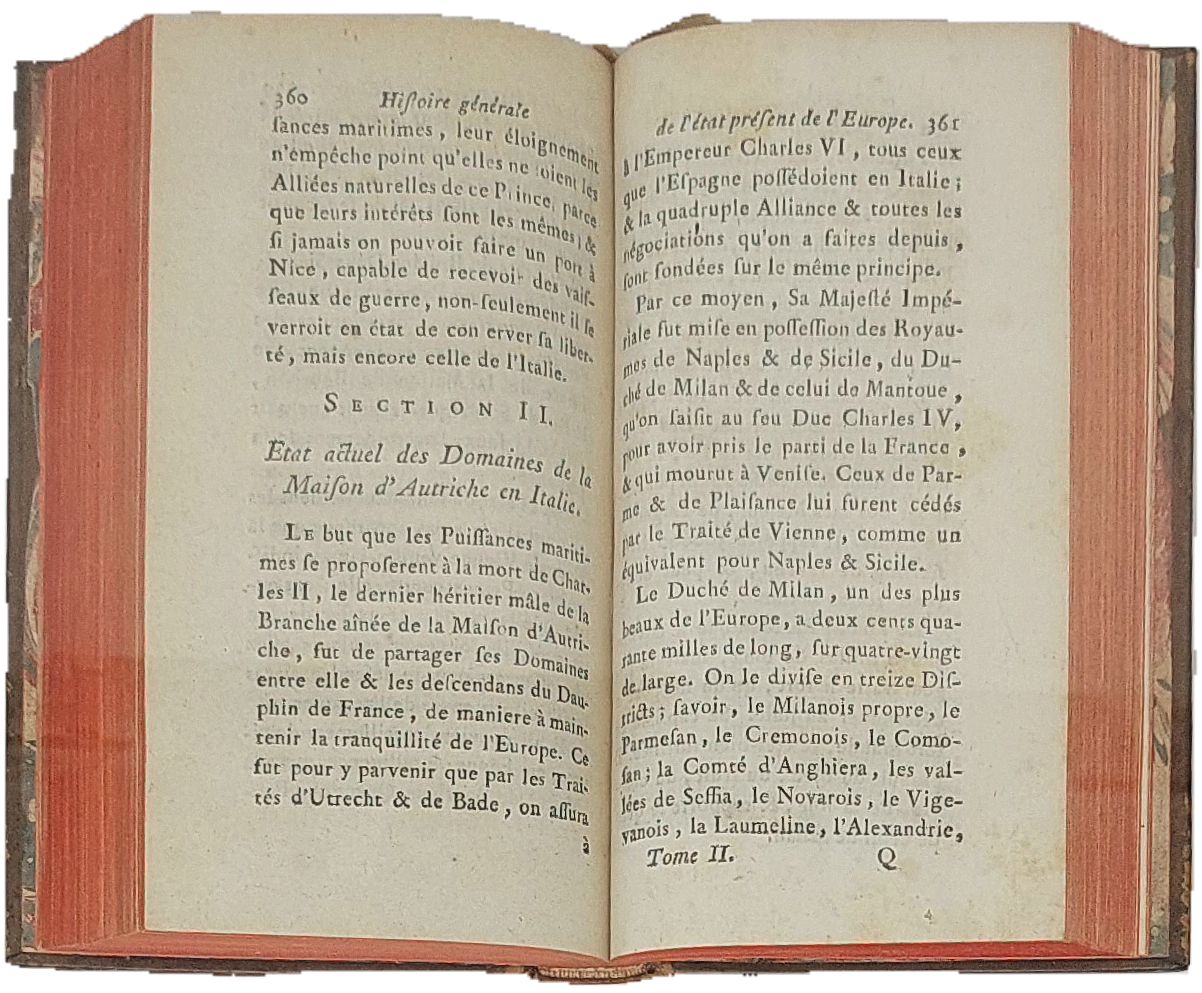 360 Hiſtoire générale
ſances maritimes, leur éloignement
n'empêche point qu'elles ne ſoient les
Alliées naturelles de ce Prince, parce
que leurs intérêts ſont les mêmes; &
ſi jamais on pouvoit faire un port à
Nice, capable de recevoir des vaiſ-
ſeaux de guerre, non-ſeulement il ſe
verroit en état de con erver ſa liber-
té, mais encore celle de l'Italie.
SECTION II.
Etat actuel des Domaines de la
Maiſon d'Autriche en Italie.
LE but que les Puiſſances mariti-
mes ſe propoſerent à la mort de Char-
les II, le dernier héritier mâle de la
Branche aînée de la Maiſon d'Autri-
che, fut de partager ſes Domaines
entre elle & les deſcendans du Dau-
phin de France, de maniere à main-
tenir la tranquillité de l'Europe. Ce
fut pour y parvenir que par les Trai-
tés d'Utrecht & de Bade, on aſſura
à
de l'état préſent de l'Europe. 361
à l'Empereur Charles VI, tous ceux
que l'Eſpagne poſſédoient en Italie;
& la quadruple Alliance & toutes les
négociations qu'on a faites depuis,
ſont fondées ſur le même principe.
Par ce moyen, Sa Majeſté Impé-
riale fut miſe en poſſeſſion des Royau-
mes de Naples & de Sicile, du Du-
ché de Milan & de celui de Mantoue,
qu'on ſaiſit au feu Duc Charles IV,
pour avoir pris le parti de la France,
& qui mourut à Veniſe. Ceux de Par-
me & de Plaiſance lui furent cédés
par le Traité de Vienne, comme un
équivalent pour Naples & Sicile.
Le Duché de Milan, un des plus
beaux de l'Europe, a deux cents qua-
rante milles de long, ſur quatre-vingt
de large. On le diviſe en treize Diſ-
tricts; ſavoir, le Milanois propre, le
Parmeſan, le Cremonois, le Como-
ſan; la Comté d'Anghiera, les val-
lées de Seſſia, le Novarois, le Vige-
vanois, la Laumeline, l'Alexandrie,
Tome II. Q
4